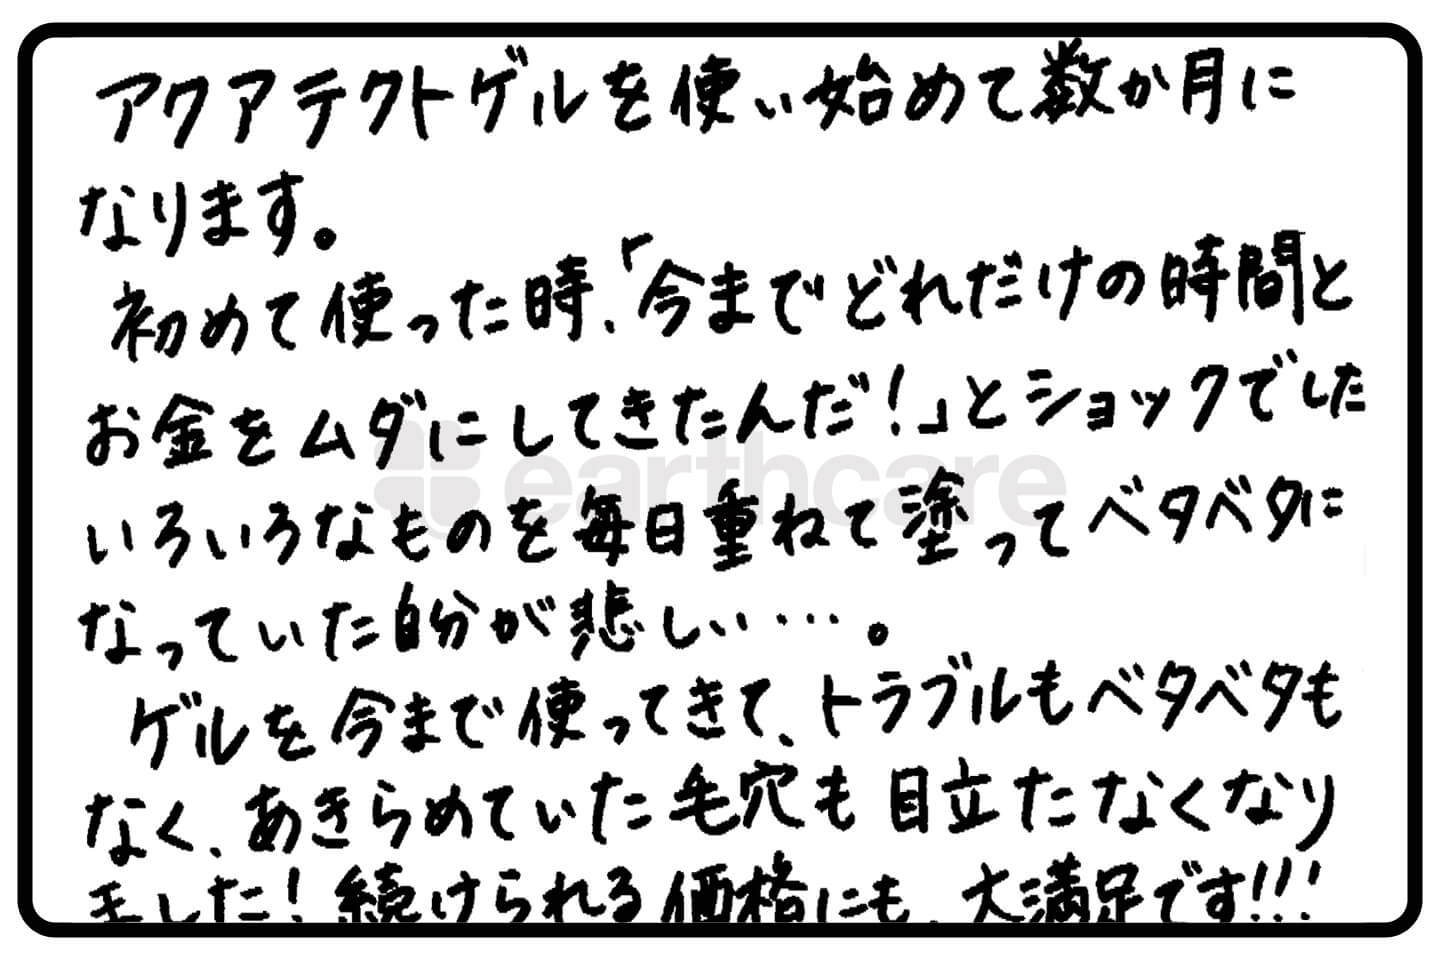 アクアテクトゲルを使い始めて数か月に
なります。
初めて使った時、「今までどれだけの時間と
お金をムダにしてきたんだ!」とショックでした
いろいろなものを毎日重ねて塗ってベタベタに
なっていた自分が悲しい…。
ゲルを今まで使ってきて、トラブルもベタベタも
なく、あきらめていた毛穴も目立たなくなり
ました!続けられる価格にも、大満足です!!!
earthcare